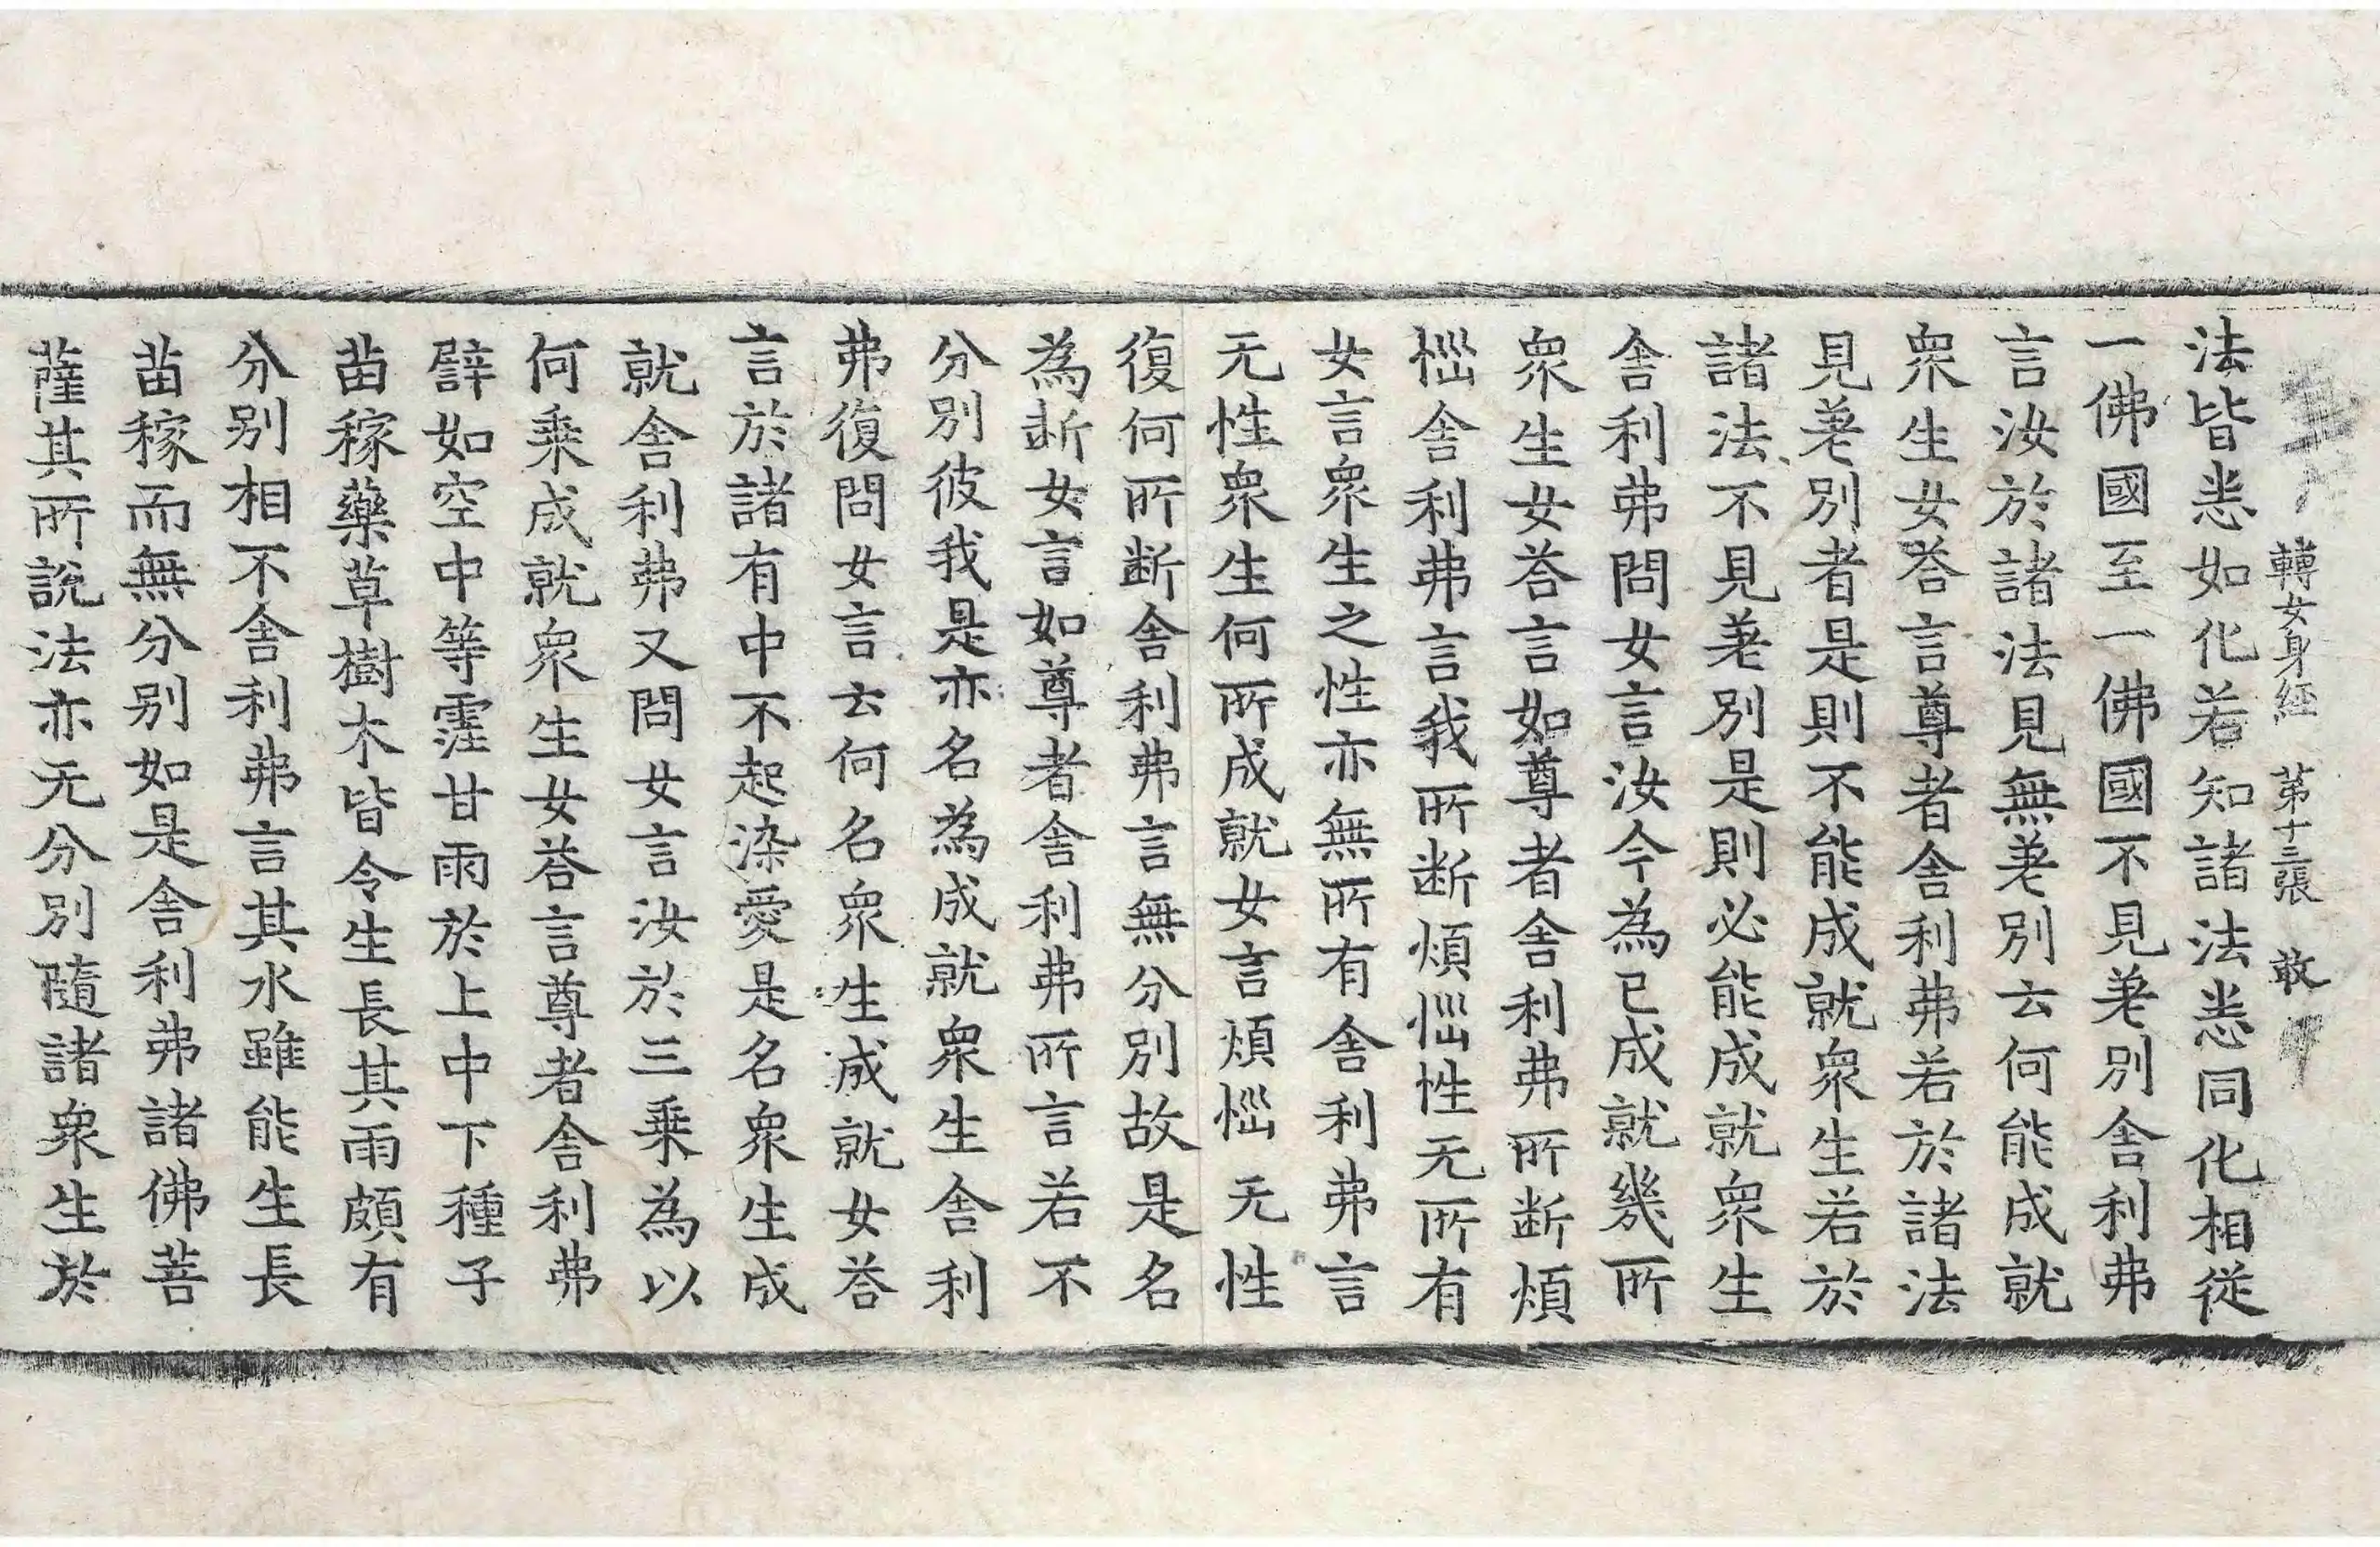 轉女身經 第十三張 敢
法皆悉如化若知諸法悉同化相從
一佛國至一佛國不見差別舍利弗
言汝於諸法見無差別云何能成就
衆生女荅言尊者舍利弗若於諸法
見差別者是則不能成就衆生若於
諸法不見差別是則必能成就衆生
舍利弗問女言汝今為已成就幾所
衆生女荅言如尊者舍利弗所断煩
惱舍利弗言我所断煩惱性无所有
女言衆生之性亦無所有舍利弗言
无性衆生何所成就女言煩惱无性
復何所断舍利弗言無分別故是名
為断女言如尊者舍利弗所言若不
分別彼我是亦名為成就衆生舍利
弗復問女言云何名衆生成就女荅
言於諸有中不起染愛是名衆生成
就舍利弗又問女言汝於三乘為以
何乘成就衆生女荅言尊者舍利弗
譬如空中等霔甘雨於上中下種子
苗稼藥草樹木皆令生長其雨頗有
分别相不舍利弗言其水雖能生長
苗稼而無分别如是舍利弗諸佛菩
薩其所說法亦无分別隨諸衆生於